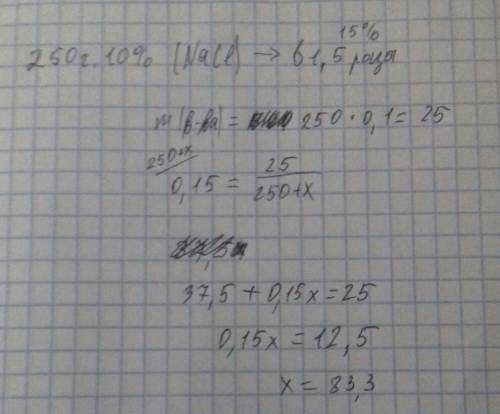 15%
250г. 10% (NaCl) → в 1,5 раза
m(в-ва) = 250 · 0,1 = 25
250+x
0,15 = 25 / 250+x
37,5 + 0,15x = 25
0,15x = 12,5
x = 83,3